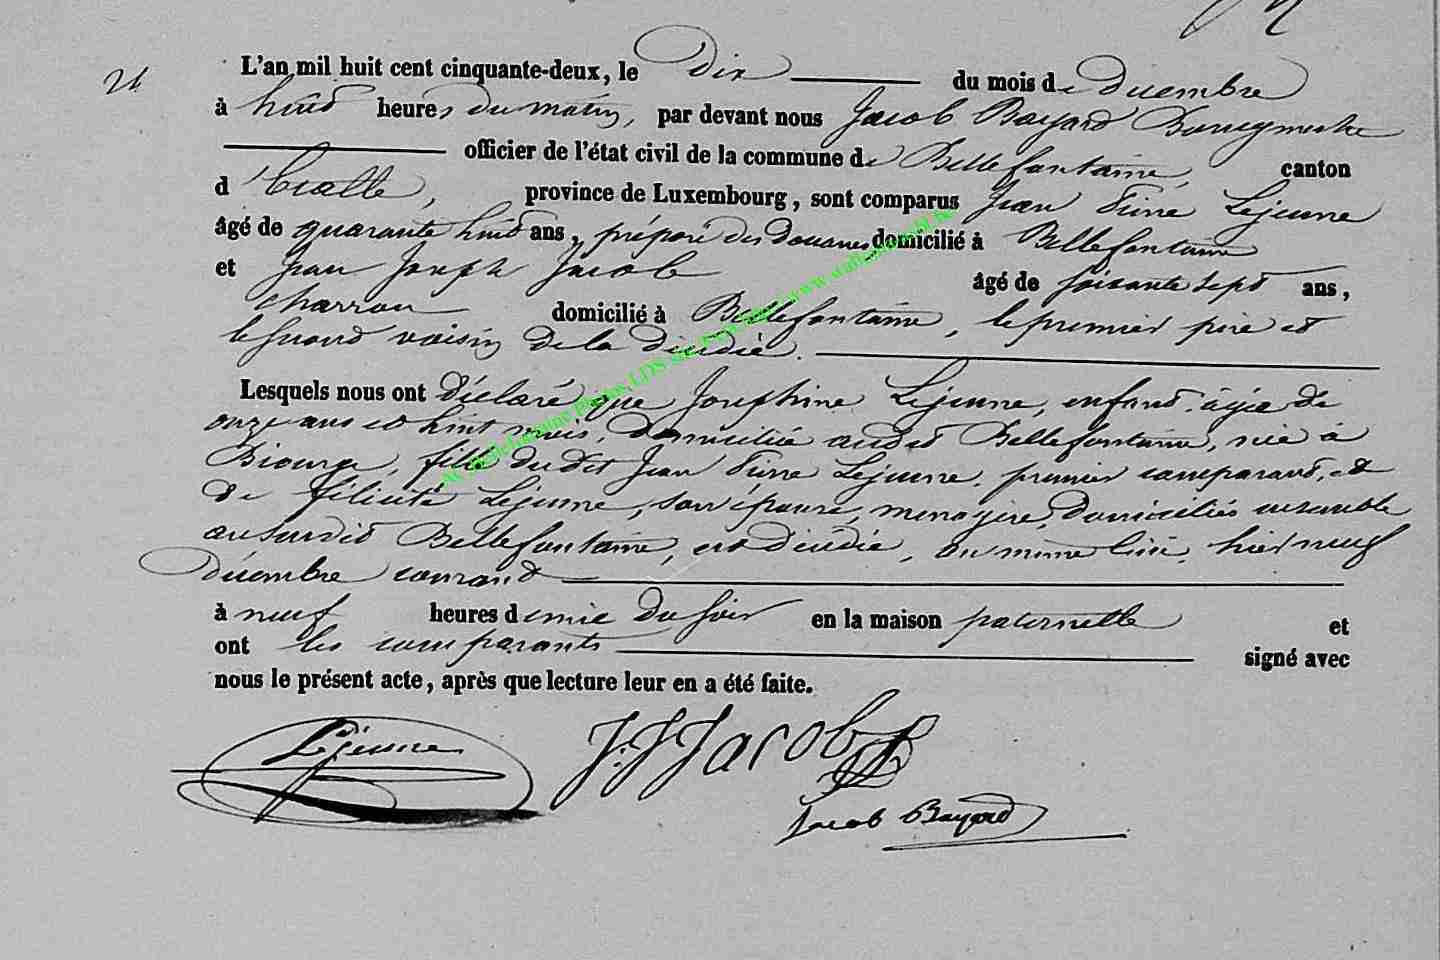 24
L'an mil huit cent cinquante-deux, le Dix du mois de Décembre
à huit heures du matin, par devant nous Jacob Bayard Bourgmestre
officier de l'état civil de la commune de Bellefontaine, canton
d'Etalle, province de Luxembourg, sont comparus Jean Pierre Lejeune
âgé de quarante huit ans, préposé des douanes domicilié à Bellefontaine
et Jean Joseph Jacob âgé de soixante sept ans,
charron domicilié à Bellefontaine, le premier père et
le second voisin de la décédée.
Lesquels nous ont déclaré que Joséphine Lejeune, enfant, âgée de
onze ans et huit mois, domiciliée audit Bellefontaine, née à
Biourge, fille du dit Jean Pierre Lejeune, premier comparant, et
de Félicité Lejeune, son épouse, menagère, domiciliés ensemble
au susdit Bellefontaine, est décédée, au même lieu, hier neuf
Décembre courant
à neuf heures demie du soir en la maison paternelle et
ont les comparants signé avec
nous le présent acte, après que lecture leur en a été faite.
Lejeune J.J Jacob
Jacob Bayard